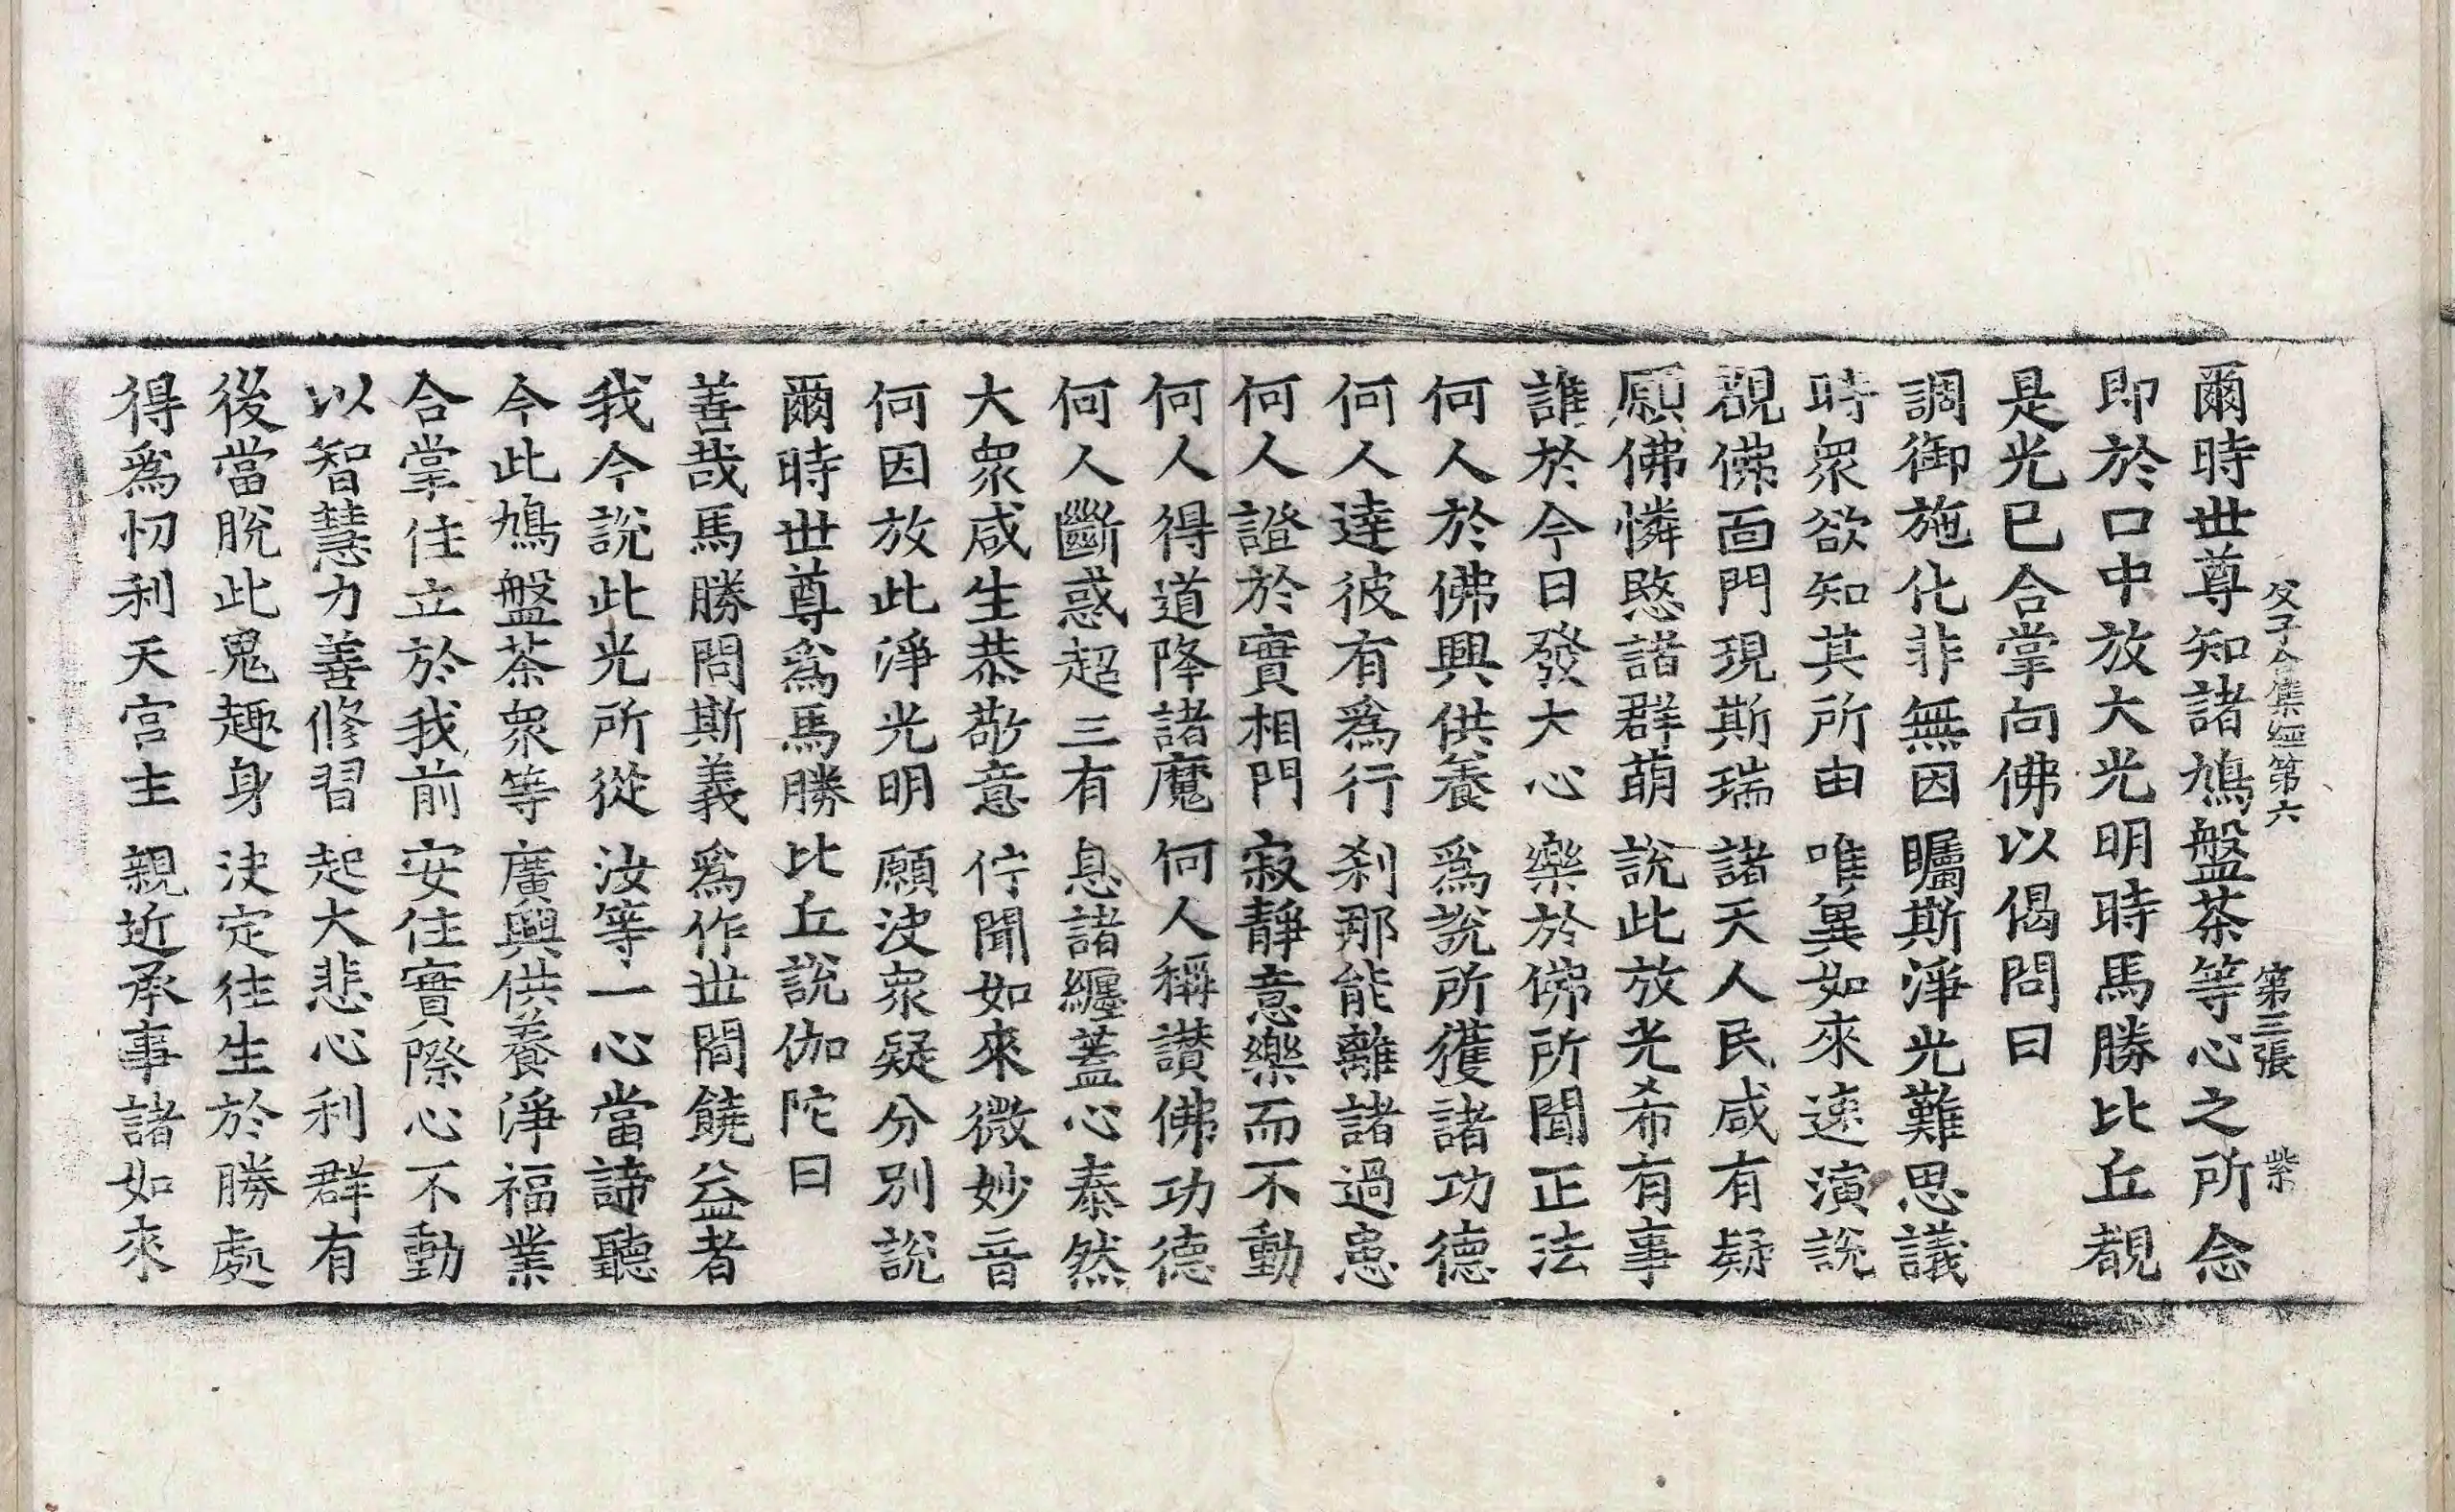 父子合集經第六　第三張　紫
爾時世尊知諸鳩盤茶等心之所念
即於口中放大光明時馬勝比丘覩
是光已合掌向佛以偈問曰
調御施化非無因　矚斯淨光難思議
時衆欲知其所由　唯兾如來速演說
覩佛面門現斯瑞　諸天人民咸有疑
願佛憐愍諸群萌　說此放光希有事
誰於今日發大心　樂於佛所聞正法
何人於佛興供養　爲說所獲諸功德
何人達彼有爲行　刹那能離諸過患
何人證於實相門　寂靜意樂而不動
何人得道降諸魔　何人稱讃佛功德
何人斷惑超三有　息諸纏蓋心泰然
大衆咸生恭敬意　佇聞如來微妙音
何因放此淨光明　願決衆疑分別說
爾時世尊爲馬勝比丘說伽陀曰
善哉馬勝問斯義　爲作世間饒益者
我今說此光所從　汝等一心當諦聽
今此鳩盤茶衆等　廣興供養淨福業
合掌住立於我前　安住實際心不動
以智慧力善修習　起大悲心利群有
後當脫此鬼趣身　決定往生於勝處
得爲忉利天宮主　親近承事諸如來